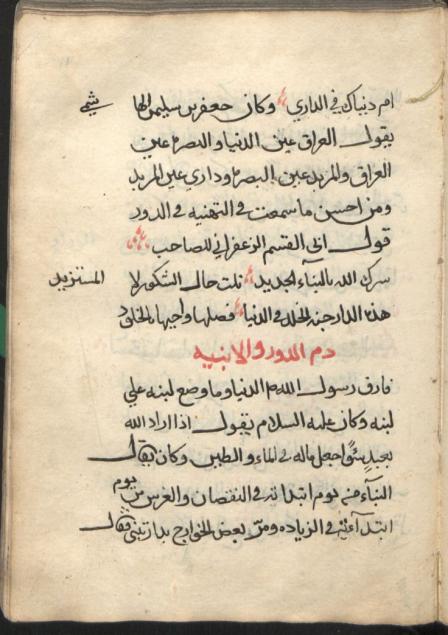 ام دنياك في الداري وكان جعفر بن سليمن الها شمي
يقول العراق عين الدنيا والبصره عين
العراق والمربد عين البصره وداري عين المربد
ومن احسن ما سمعت في التهنيه في الدور
قول ابي القسم الزعفراني للصاحب
سرك الله بالبناء الجديد نلت حال الشكور لا المستزيد
هذه الدار جنة الخلد في الدنيا فصلها واختها بالخلود
ذم الدور والابنيه
فارق رسول الله الدنيا وما وضع لبنه علي
لبنه وكان عليه السلام يقول اذا اراد الله
بعبد اجعل ماله في الماء والطين وكان يقال
البناء من يوم ابتدائه في النقصان والغرس من يوم
ابتدآئه في الزياده ومر بعض الخوارج بدار تبني فقال